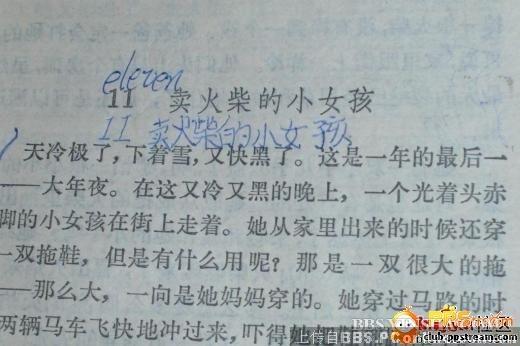 eleven
11 卖火柴的小女孩
11 卖火柴的小女孩
天冷极了，下着雪，又快黑了。这是一年的最后一
——大年夜。在这又冷又黑的晚上，一个光着头赤
脚的小女孩在街上走着。她从家里出来的时候还穿
一双拖鞋，但是有什么用呢？那是一双很大的拖
——那么大，一向是她妈妈穿的。她穿过马路的时
两辆马车飞快地冲过来，吓得她
上传自BBS.PC
club.ppstream.com